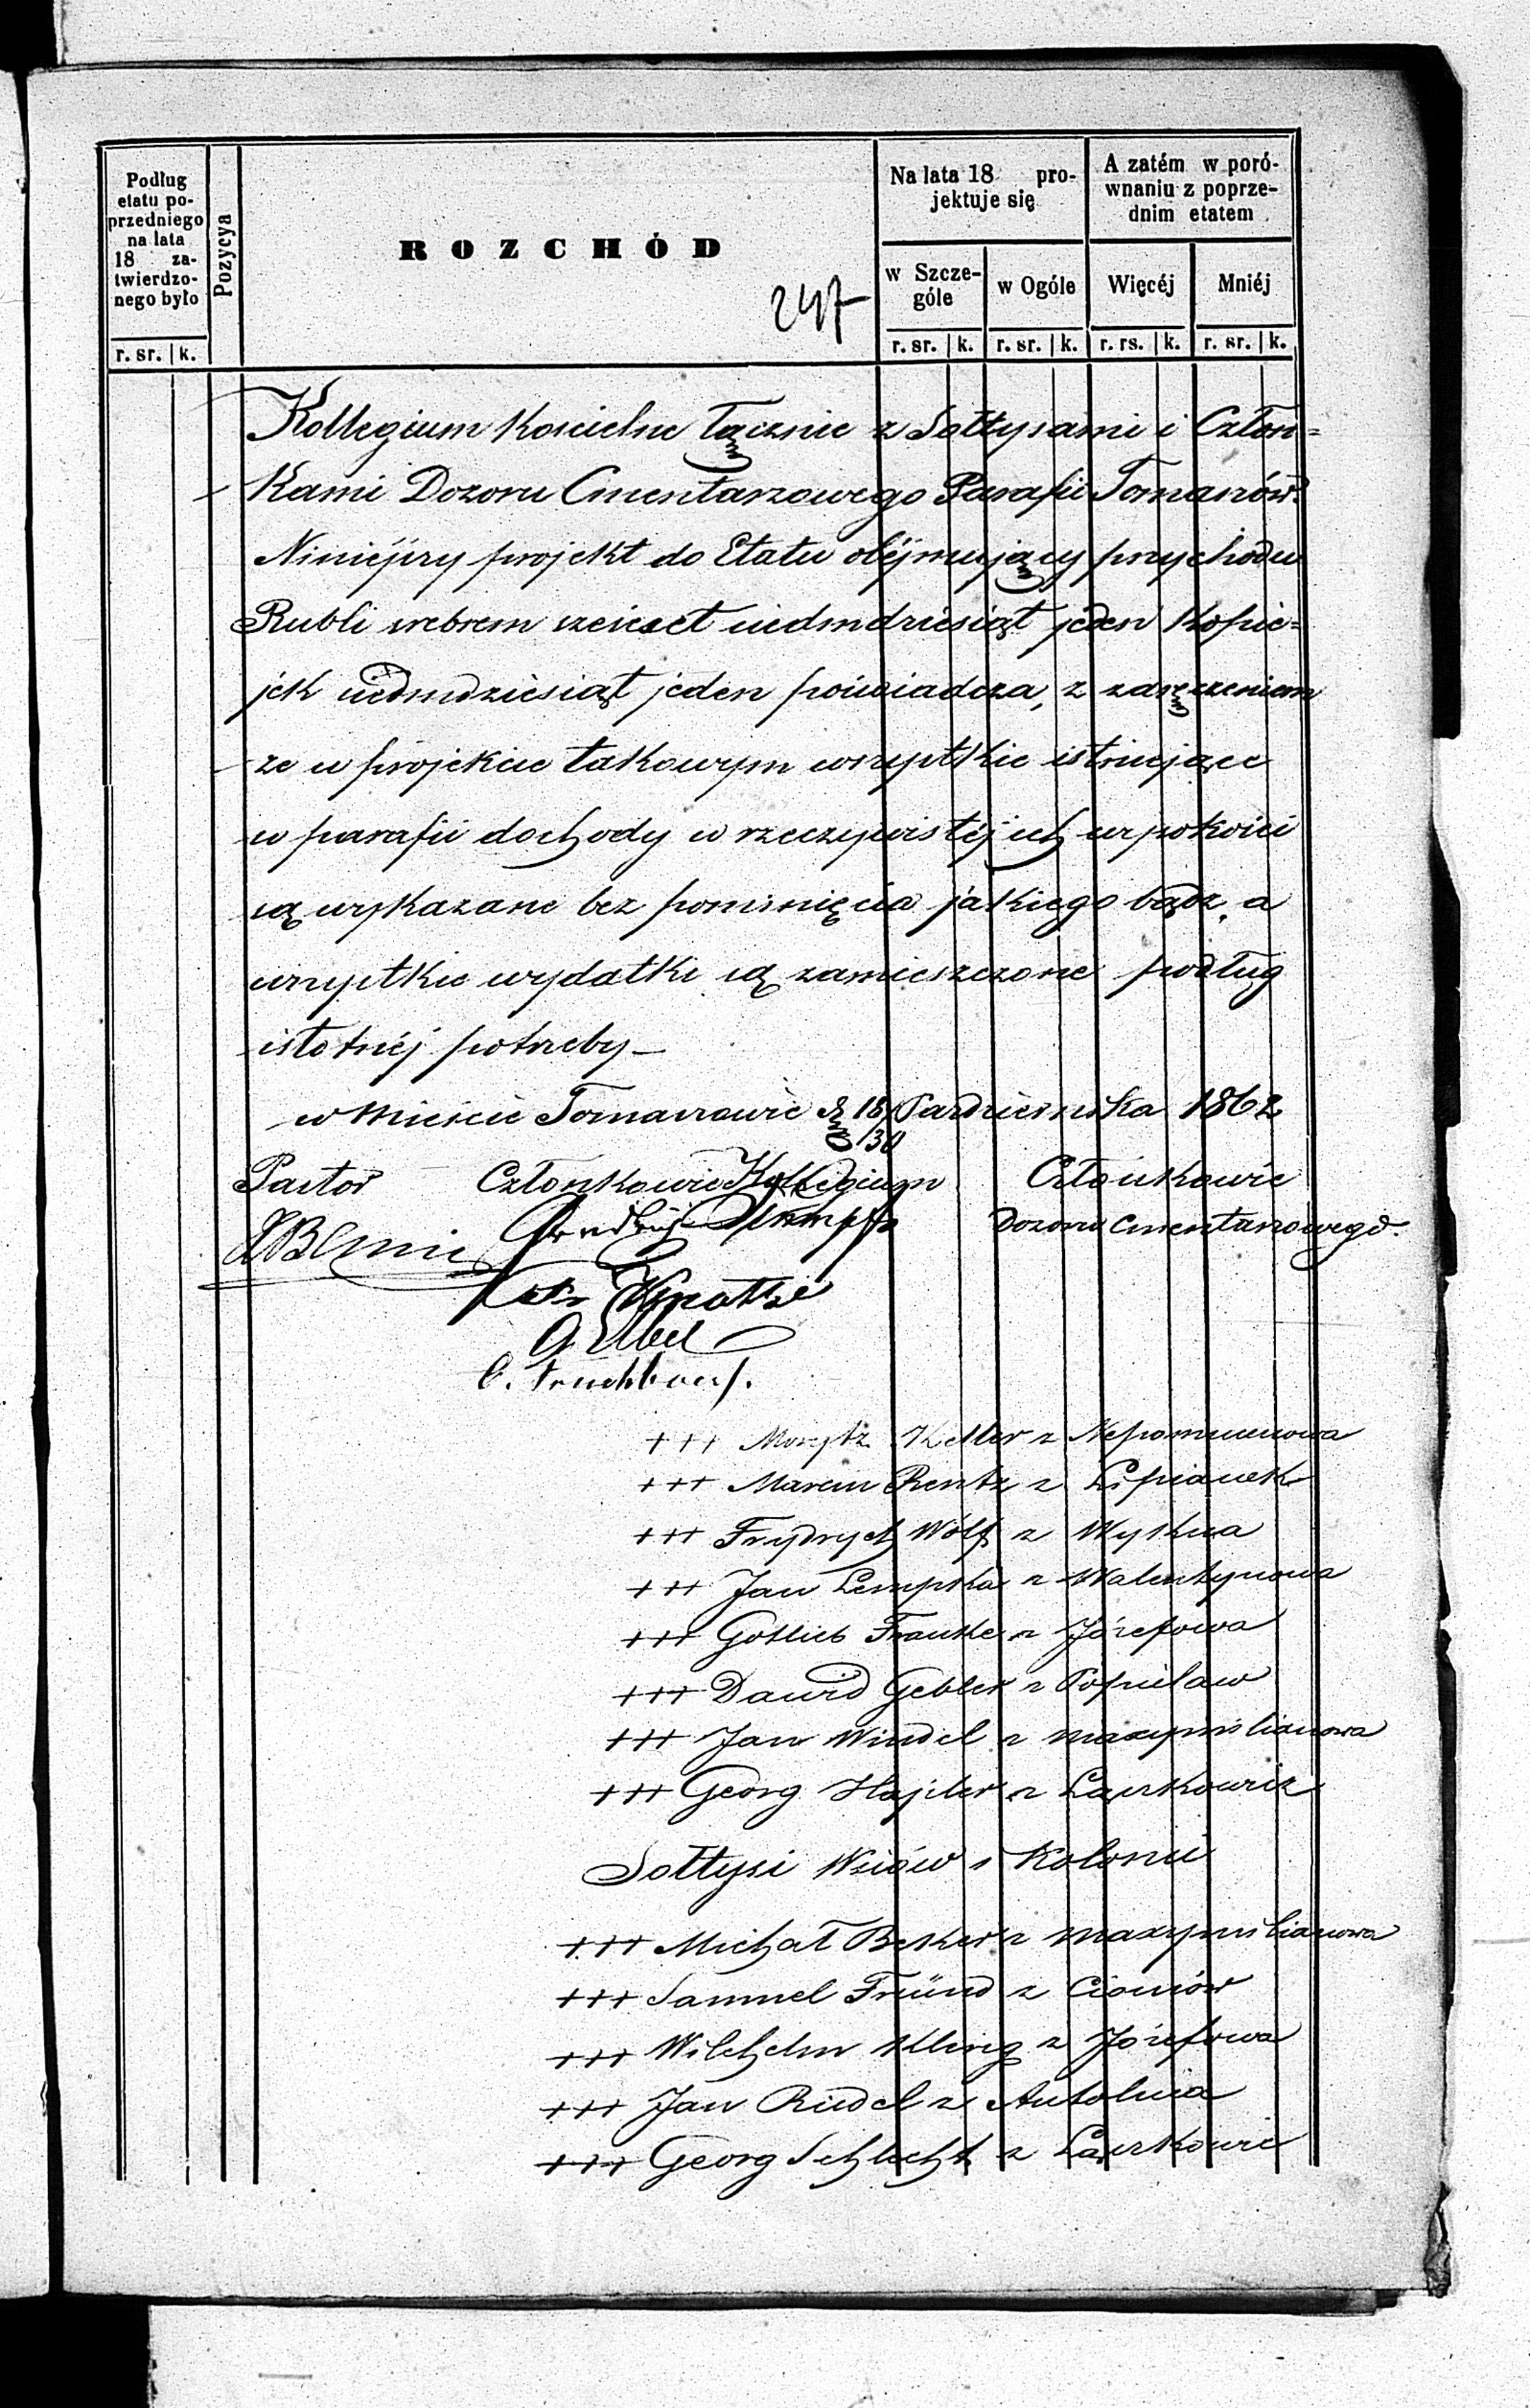 Podług
etatu po-
przedniego
na lata
18 za-
twierdzo-
nego było
Pozycya
ROZCHÓD
247
Na lata 18 pro-
jektuje się
A zatém w poró-
wnaniu z poprze-
dnim etatem
w Szcze-
góle
w Ogóle
Więcéj
Mniéj
r. sr. k.
r. sr. k. r. sr. k. r. rs. k. r. sr. k.
Kollegium Kościelne łącznie z Sołtysami i Człon=
Kami Dozoru Cmentarzowego Parafii Tomaszów.
Niniéjszy projekt do Etatu obéjmujący przychodu
Rubli srebrem sześćset siedmdziesiąt jeden Kopie=
jek siedmdziesiąt jeden poświadcza, z zaręczeniem
że w projekcie takowym wszystkie istniejące
w parafii dochody w rzeczywistéj ich wysokości
są wykazane bez pominięcia jakiego bądź, a
wszystkie wydatki są zamieszczone podług
istotnéj potrzeby —
w Mieście Tomaszowie d. 18/30 Pazdziernika 1862
Pastor Członkowie Kollegium Członkowie
Dozoru Cmentarzowego.
Knothe
+++ Morytz Keller z Nepomucenowa
+++ Marcin Rentz z Lipianek
+++ Frydrych Wolf z Wykna
+++ Jan Lempke z Walentynowa
+++ Gotlieb Franke z Józefowa
+++ Dawid Gebler z Popielaw
+++ Jan Windel z Maxymilianowa
+++ Georg Hajsler z Łazkowic
Sołtysi Wsiów i Kolonii
+++ Michał Beker z Maxymilianowa
+++ Samuel Freünd z Ciosnów
+++ Wilchelm Kling z Józefowa
+++ Jan Riedel z Antolina
+++ Georg Schlecht z Łazkowic